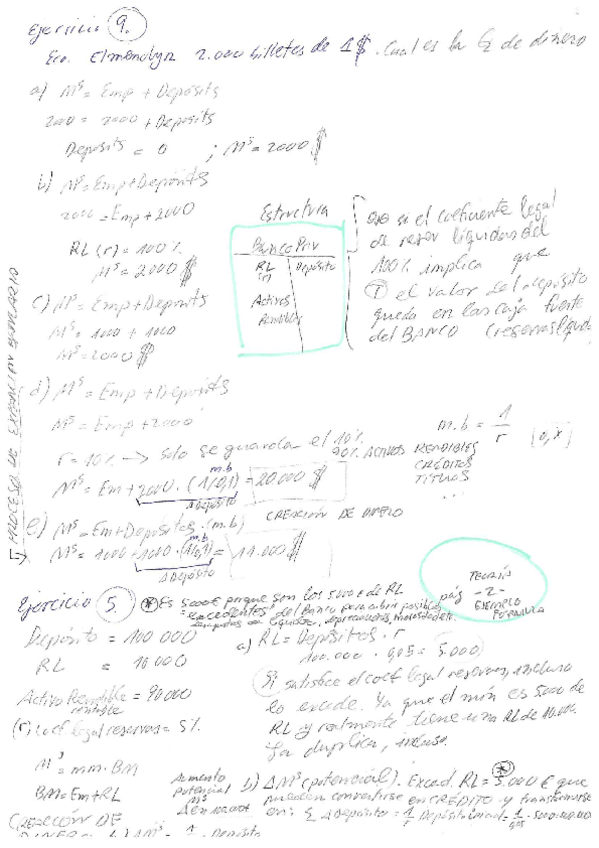 Ejercicio 9.
Eco. Elmendyn 2.000 billetes de 1$. Cual es la C de dinero
a) Mˢ = Emp + Deposits
2000 = 2000 + Deposits
Deposits = 0 ; Mˢ = 2000 $
b) Mˢ = Emp + Deposits
2000 = Emp + 2000
RL (r) = 100%
Mˢ = 2000 $
Estructura
Banco Priv
RL (r) Depósito
Activos
Rentables
si el coeficiente legal
de reser liquidas del
100% implica que
el valor del depósito
queda en las caja fuerte
del BANCO (reservas liquid
c) Mˢ = Emp + Deposits
Mˢ = 1000 + 1000
Mˢ = 2000 $
d) Mˢ = Emp + Deposits
Mˢ = Emp + 2000
r = 10% → solo se guarda el 10%
90% ACTIVOS RENDIBLES
CRÉDITOS
TITULOS
...
m.b = 1/r
m.b
Mˢ = Em + 2000 · (1/0,1) = 20.000 $
Δ Depósito
CREACIÓN DE DINERO
e) Mˢ = Em + Depositos · (m.b)
m.b
Mˢ = 1000 + 1000 · (1/0,1) = 11.000 $
Δ Depósito
PROCESO DE EXPANSIÓN BANCARIO
TEORÍA
pág -2-
EJEMPLO
FORMULA
Ejercicio 5. * Es 5000€ porque son los 5000€ de RL
"excedentes" del Banco para cubrir posibles
Depósito = 100 000
RL = 10 000
Activo Rentable = 90000
(r) coef legal reservas = 5%
a) RL = Depósitos · r
100.000 · 0,05 = 5.000
Si satisface el coef legal reservas, incluso
lo excede. Ya que el mín es 5000 de
RL y realmente tiene una RL de 10.000.
La duplica, incluso.
Mˢ = mm · BM
BM = Em + RL
Aumento
potencial
Mˢ
b) ΔMˢ (potencial). Exced. RL = 5.000 € que
pueden convertirse en CRÉDITO y transformarse
en: Σ Δ Depósito = 1/r · Depósito inicial = 1/0,05 · 5000
CREACIÓN DE